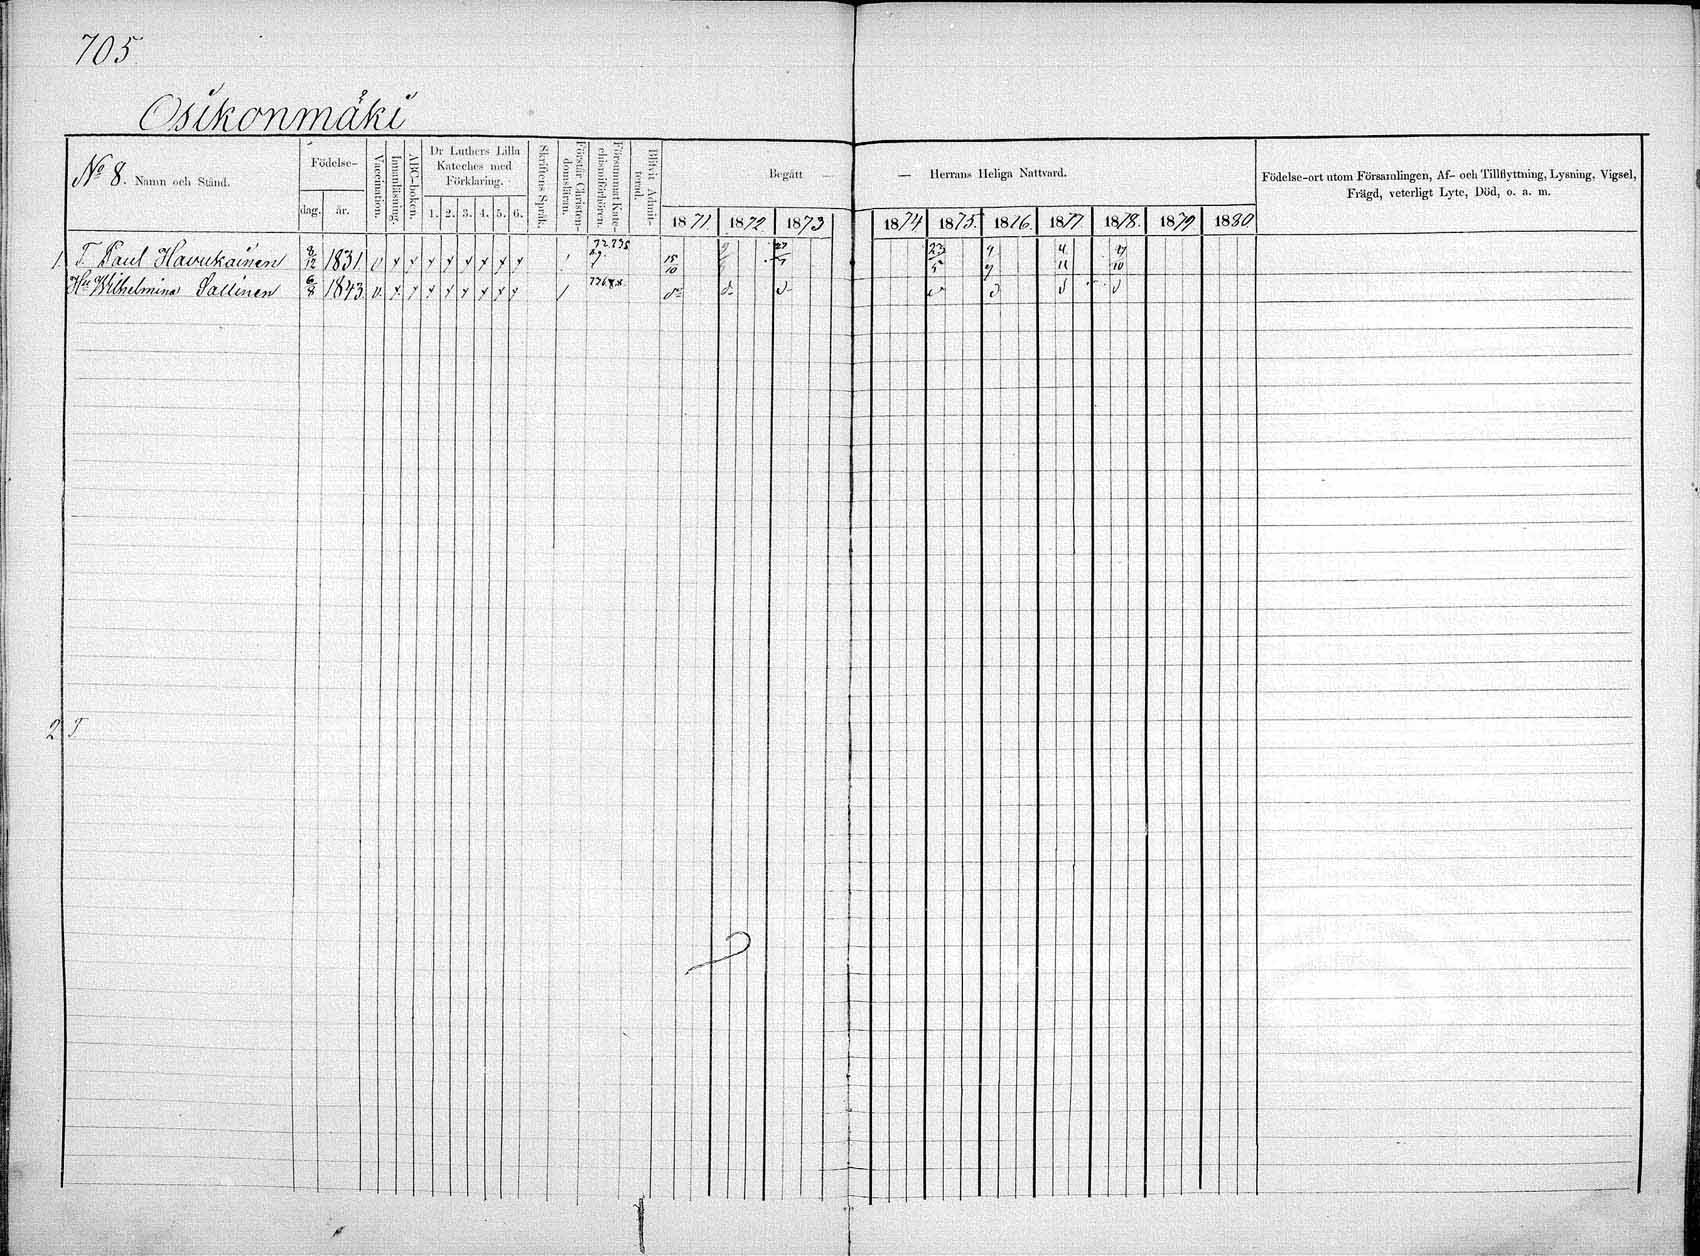 705
Osikonmäki
No 8. Namn och Stånd.
Födelse-
dag. år.
Vaccination.
Innanläsning.
ABC-boken.
Dr Luthers Lilla
Kateches med
Förklaring.
1. 2. 3. 4. 5. 6.
Skriftens Språk.
Förstår Christen-
domsläran.
Försummat Kate-
chismiförhören.
Blifvit Admit-
terad.
Begått — — Herrans Heliga Nattvard.
1871. 1872. 1873 1874 1875. 1876. 1877 1878. 1879 1880
Födelse-ort utom Församlingen, Af- och Tillflyttning, Lysning, Vigsel,
Frägd, veterligt Lyte, Död, o. a. m.
1. T. Paul Havukainen 8/12 1831 v x x x x x x x x 15/10 23/5 4/11
Hu Wilhelmina Sallinen 6/8 1843. v. x x x x x x x x
2 T.